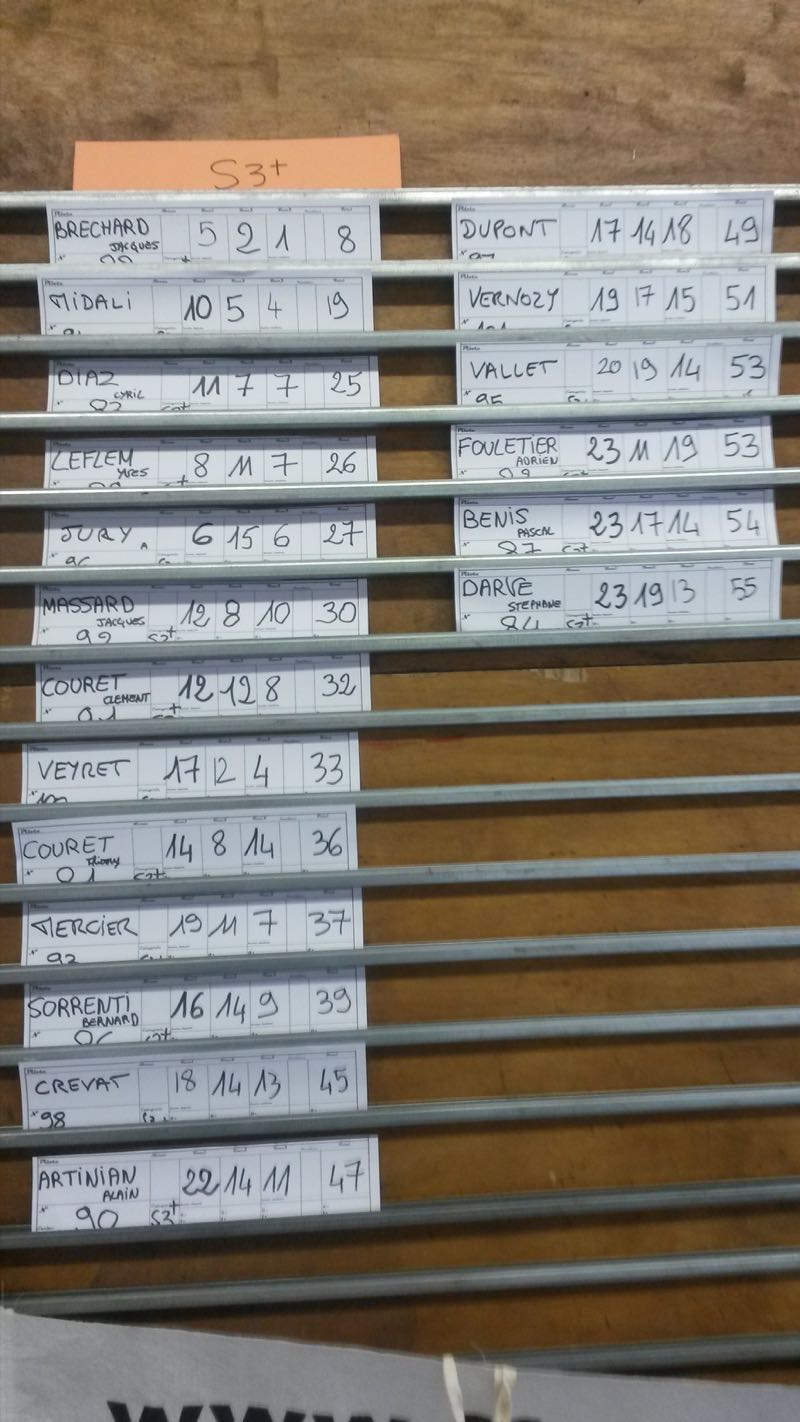 S3+
BRECHARD 5 2 1 8
JACQUES
MIDALI 10 5 4 19
DIAZ 11 7 7 25
CYRIL
LEFLEM 8 11 7 26
YVES
JURY A 6 15 6 27
MASSARD 12 8 10 30
JACQUES
92 S3+
COURET 12 12 8 32
CLEMENT
VEYRET 17 12 4 33
COURET 14 8 14 36
Thierry
MERCIER 19 11 7 37
SORRENTI 16 14 9 39
BERNARD
CREVAT 18 14 13 45
98
ARTINIAN 22 14 11 47
ALAIN
90 S3+
DUPONT 17 14 18 49
VERNOZY 19 17 15 51
VALLET 20 19 14 53
FOULETIER 23 11 19 53
ADRIEN
BENIS 23 17 14 54
PASCAL
DARVE 23 19 13 55
STEPHANE